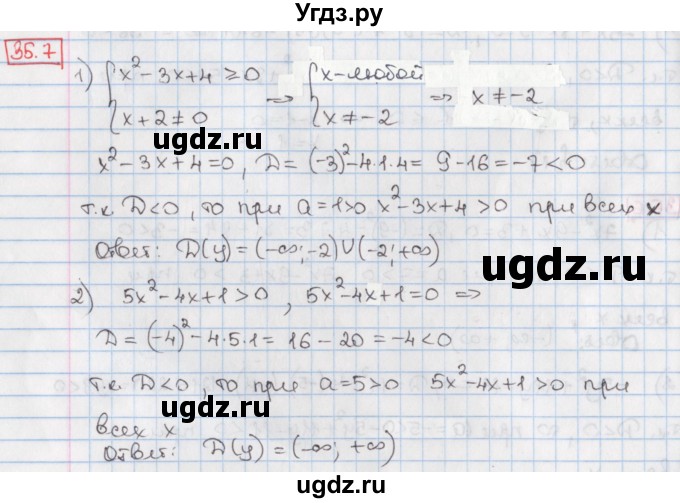 Угдз.ру
35.7
1) { x² - 3x + 4 ≥ 0 ⇒ { x - любой ⇒ x ≠ -2
x + 2 ≠ 0 x ≠ -2
ugdz.ru
x² - 3x + 4 = 0, D = (-3)² - 4·1·4 = 9 - 16 = -7 < 0
т.к D < 0, то при a = 1 > 0 x² - 3x + 4 > 0 при всех x
Ответ: D(y) = (-∞; -2) ∪ (-2; +∞)
ugdz.ru
2) 5x² - 4x + 1 > 0, 5x² - 4x + 1 = 0 ⇒
D = (-4)² - 4·5·1 = 16 - 20 = -4 < 0
ugdz.ru
т.к D < 0, то при a = 5 > 0 5x² - 4x + 1 > 0 при
всех x
Ответ: D(y) = (-∞; +∞)
ugdz.ru